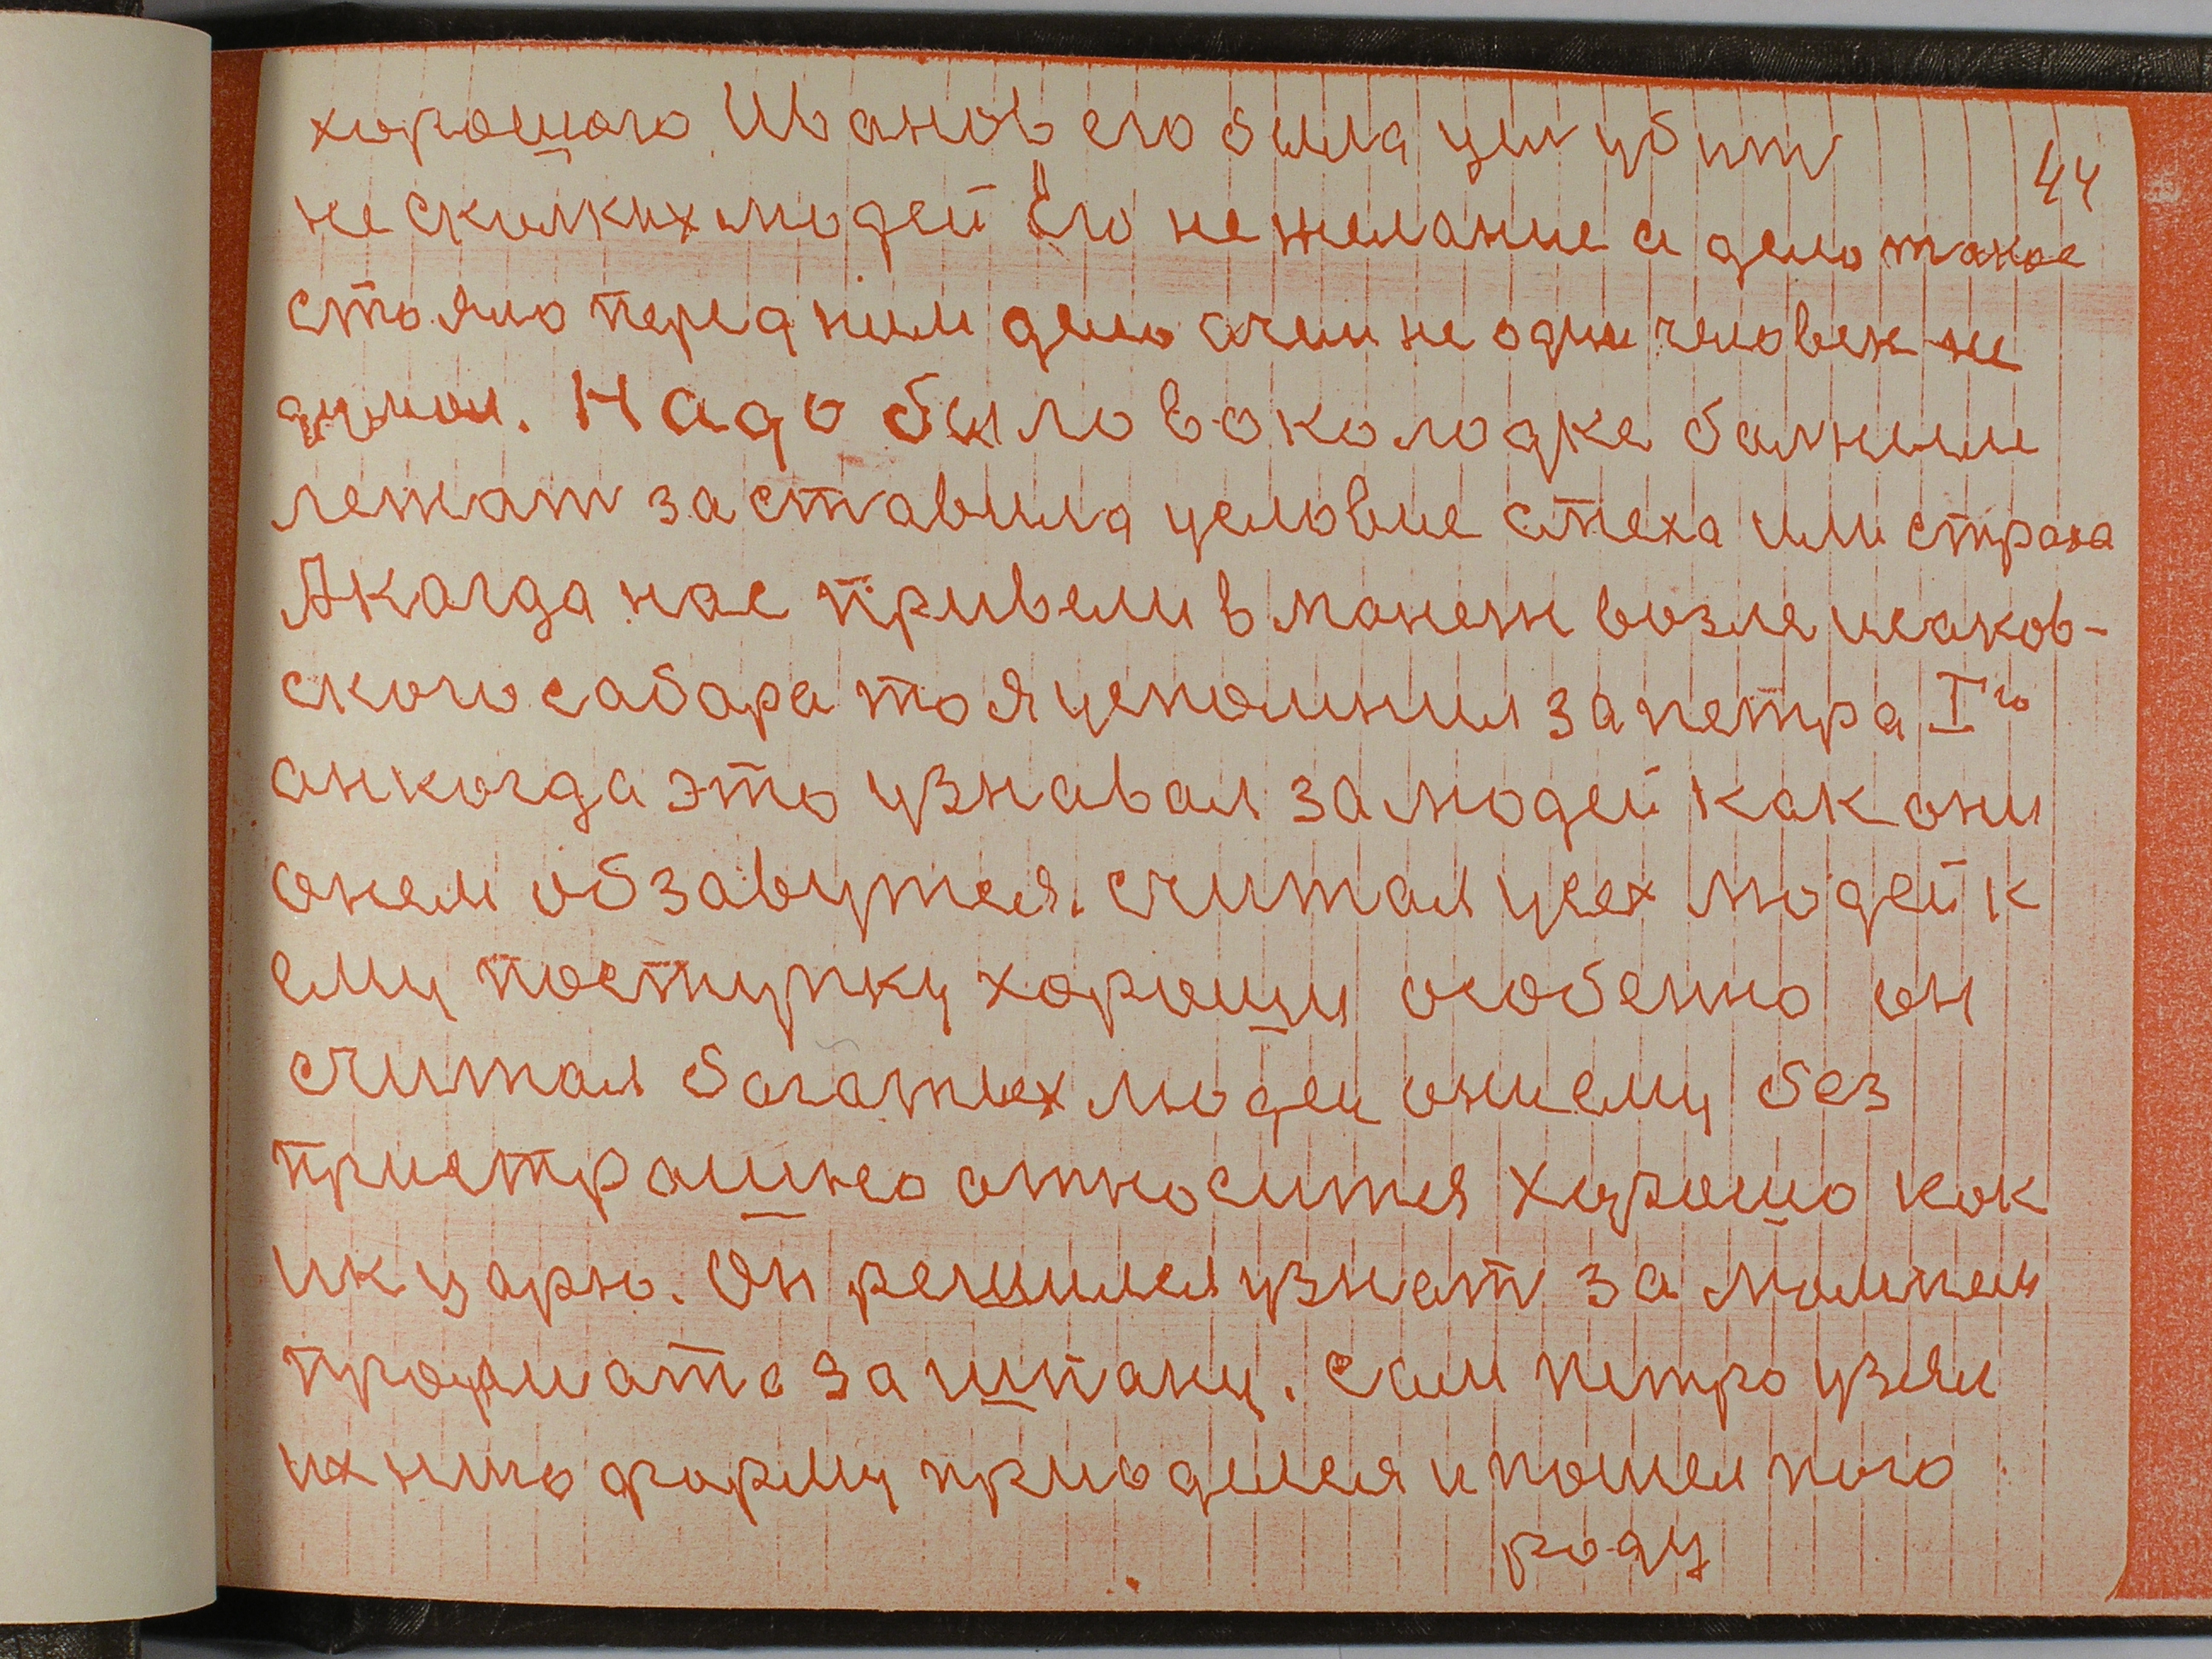 хорошого Иванов его была цел убит
44
не сколких людей Его не желание а дело такое
стояло перед ним дело очем не один человек не
думал. Надо было воколодке болним
лежат заставила условие смеха или страха
А когда нас привели в манеж возле исаков-
ского сабора то я успомнил за петра Iго
он когда это узнавал за людей как они
онем обзавутся. считал усех людей к
ему поступку хороши особенно он
считал богатых людей они ему без
пристрашно относится хорошо как
ик царю. Он решился узнат за
за шпану. сам петро узял
ихнию форму приоделся и пошел пого
роду